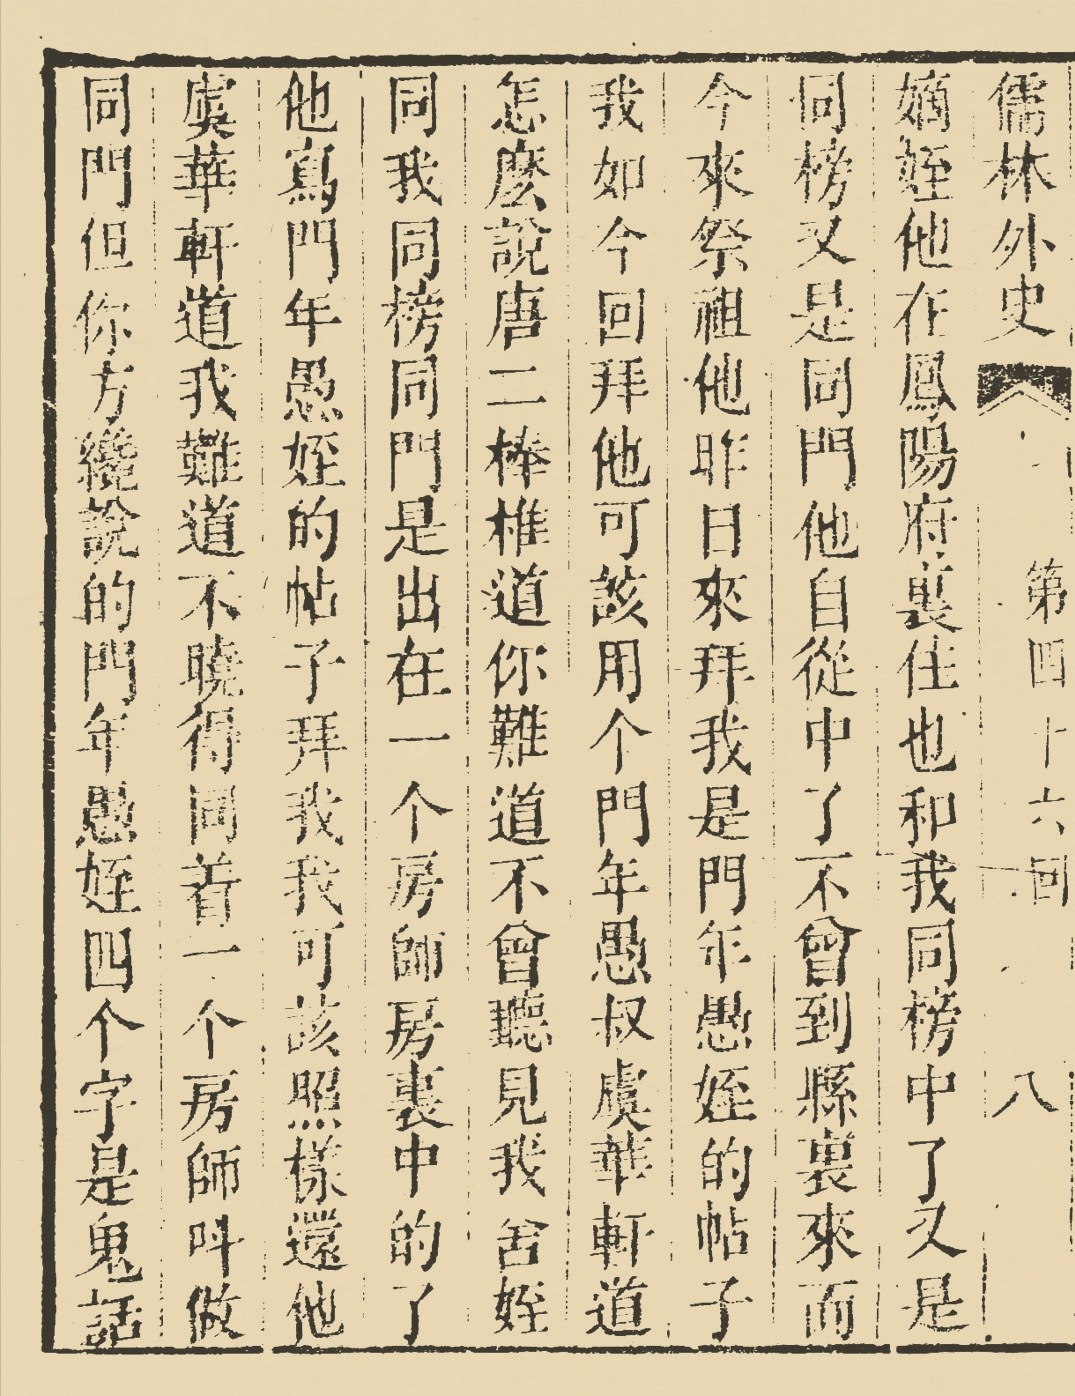 儒林外史 第四十六回 八
嫡姪他在鳳陽府裏住也和我同榜中了又是
同榜又是同門他自從中了不曾到縣裏來而
今來祭祖他昨日來拜我是門年愚姪的帖子
我如今回拜他可該用个門年愚叔虞華軒道
怎麽說唐二棒椎道你難道不曾聽見我舍姪
同我同榜同門是出在一个房師房裏中的了
他寫門年愚姪的帖子拜我我可該照樣還他
虞華軒道我難道不曉得同着一个房師呌做
同門但你方纔說的門年愚姪四个字是鬼話